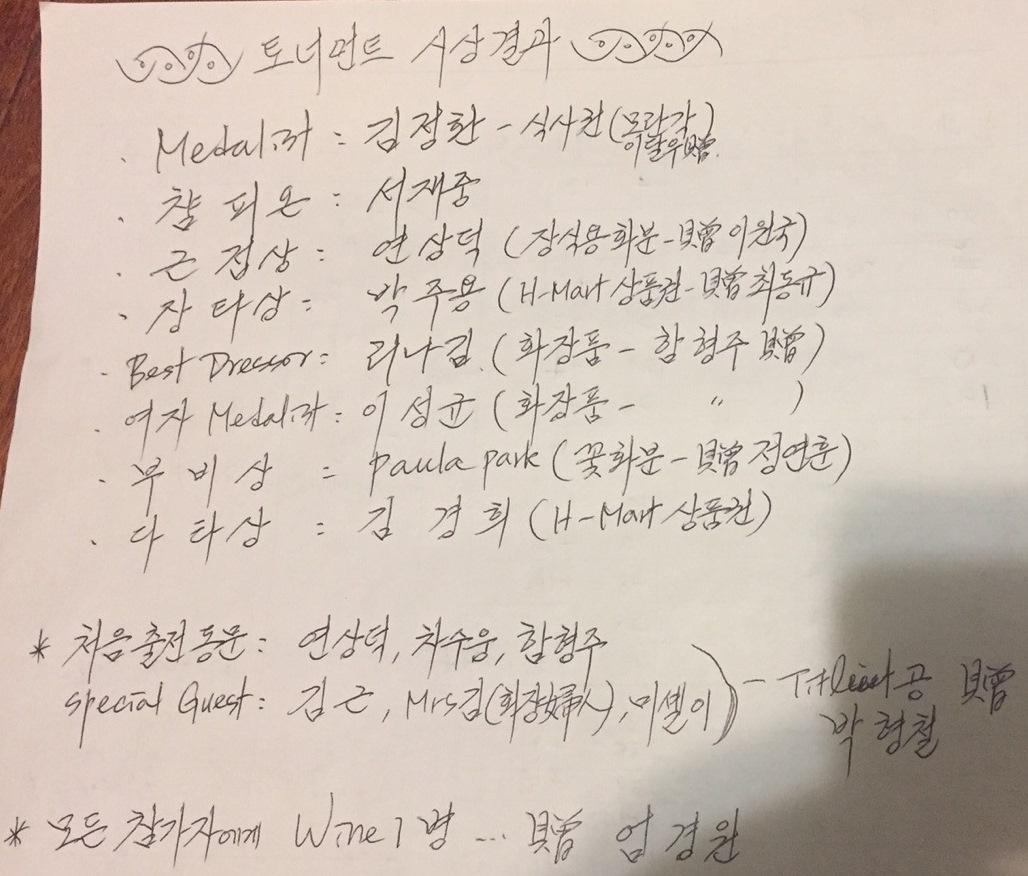 토너먼트 시상결과
· Medalist : 김정환 - 식사권 (모란각 이달우 贈)
· 챔피온 : 서재중
· 근접상 : 연상덕 (장식용화분 - 貝曾 이원국)
· 장타상 : 박주용 (H-Mart 상품권 - 貝曾 최동규)
· Best Dressor : 리나김 (화장품 - 함형주 贈)
· 여자 Medalist : 이성균 (화장품 - 〃 )
· 부비상 : Paula park (꽃화분 - 貝曾 정연훈)
· 다타상 : 김경희 (H-Mart 상품권)
* 처음출전동문 : 연상덕, 차수웅, 함형주
special Guest : 김근, Mrs김(회장婦人), 미셸이) - Titleist공 贈
박형철
* 모든 참가자에게 Wine 1병 ... 贈 엄경원